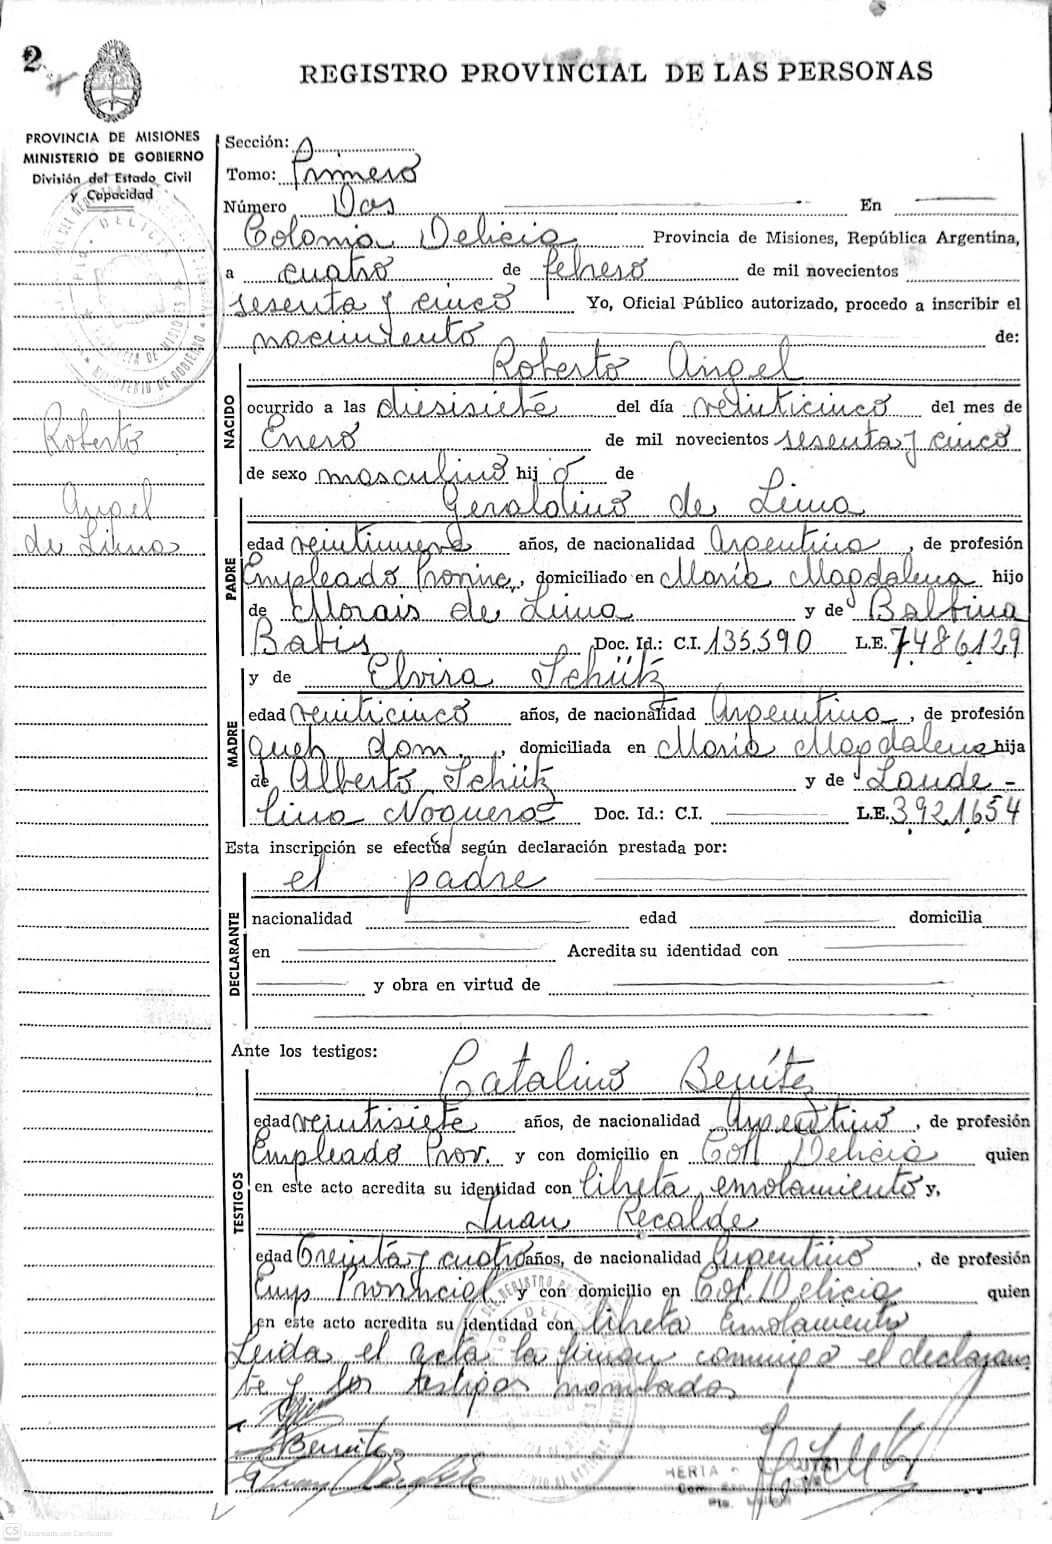 2
REGISTRO PROVINCIAL DE LAS PERSONAS
PROVINCIA DE MISIONES
MINISTERIO DE GOBIERNO
División del Estado Civil
y Capacidad
Sección: A
Tomo: Primero
Número Dos En
Colonia Delicia Provincia de Misiones, República Argentina,
a cuatro de febrero de mil novecientos
sesenta y cinco Yo, Oficial Público autorizado, procedo a inscribir el
nacimiento de:
Roberto Angel
NACIDO
ocurrido a las diesisiete del día veinticinco del mes de
Enero de mil novecientos sesenta y cinco
de sexo masculino hij o de
Roberto
Angel
de Lima
Geraldino de Lima
PADRE
edad veintinueve años, de nacionalidad Argentina, de profesión
Empleado domiciliado en María Magdalena hijo
de Morais de Lima y de Balbina
Doc. Id.: C.I. 135.590 L.E. 7.486.129
y de Elvira Schütz
MADRE
edad veinticinco años, de nacionalidad Argentina, de profesión
queh dom., domiciliada en María Magdalena hija
de Alberto Schütz y de Laude-
lina Noguera Doc. Id.: C.I. L.E. 3.921.654
Esta inscripción se efectúa según declaración prestada por:
el padre
DECLARANTE
nacionalidad edad domicilia
en Acredita su identidad con
y obra en virtud de
Ante los testigos:
Catalino Benítez
TESTIGOS
edad veintisiete años, de nacionalidad Argentino, de profesión
Empleado Prov. y con domicilio en Col Delicia quien
en este acto acredita su identidad con libreta enrolamiento y,
Juan Recalde
edad treinta y cuatro años, de nacionalidad Argentino, de profesión
Emp Provincial y con domicilio en Col. Delicia quien
en este acto acredita su identidad con libreta Enrolamiento
Leida el acta la firman conmigo el declaran
te y los testigos nombrados
Benitez
HERTA
CS Escaneado con CamScanner